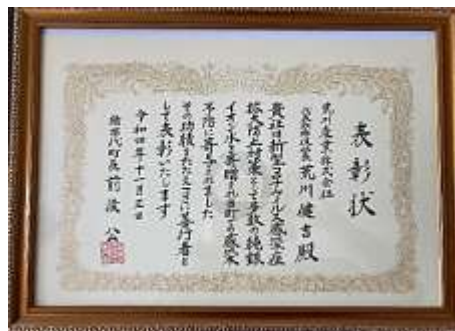 表彰状
荒川産業株式会社
代表取締役 荒川健吉殿
貴社は新型コロナウイルス感染症
拡大防止対策として多数の純銀
イオン水を寄贈され当町の感染
予防に寄与されました
その功績をたたえここに善行者と
して表彰いたします
令和四年十一月三日
猪苗代町長 前後 公